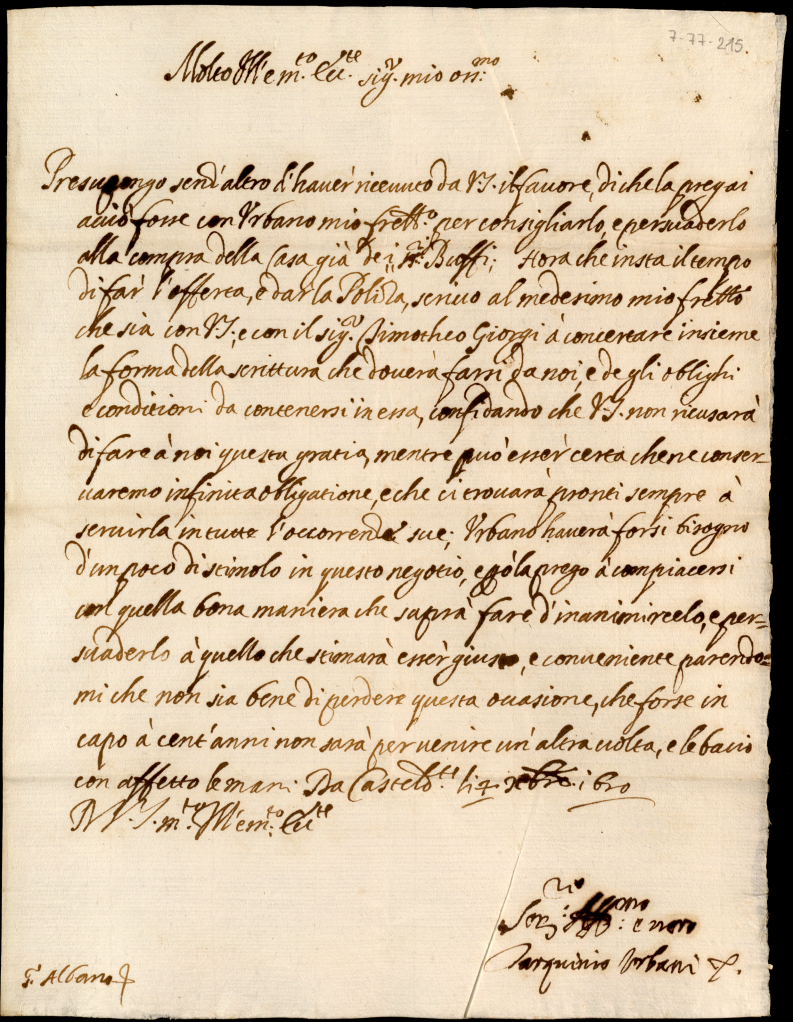 7-77-215.
Molto Ill.e m.to Ecc.te sig.r mio oss.mo
Presupongo senz'altro d'haver ricevuto da V.S. il favore, di che la pregai
acciò fosse con Urbano mio fratt.o per consigliarlo, e persuaderlo
alla compra della Casa già de i ss.ri Buffi; Hora che insta il tempo
di far l'offerta, e dar la Poliza, scrivo al medesimo mio fratto
che sia con V.S; e con il sig.r Timotheo Giorgi à concertare insieme
la forma della scrittura che doverà farsi da noi, e de gli oblighi
e conditioni da contenersi in essa, confidando che V.S. non ricusarà
di fare à noi questa gratia, mentre può esser certa che ne conser-
varemo infinita obligatione, e che ci trovarà pronti sempre à
servirla in tutte l'occorrenze sue; Urbano haverà forsi bisogno
d'un poco di stimolo in questo negotio, e però la prego à compiacersi
con quella bona maniera che saprà fare d'inanimircelo, e per=
suaderlo à quello che stimarà esser giusto, e conveniente parendo=
mi che non sia bene di perdere questa occasione, che forse in
capo à cent'anni non sarà per venire un'altra volta, e le bacio
con affetto le mani. Da Castel li 4
D V.S. m.to Ill.e m.to Ecc.te
Ser.re Aff.mo e vero
Tarquinio Urbani
s.r Albano